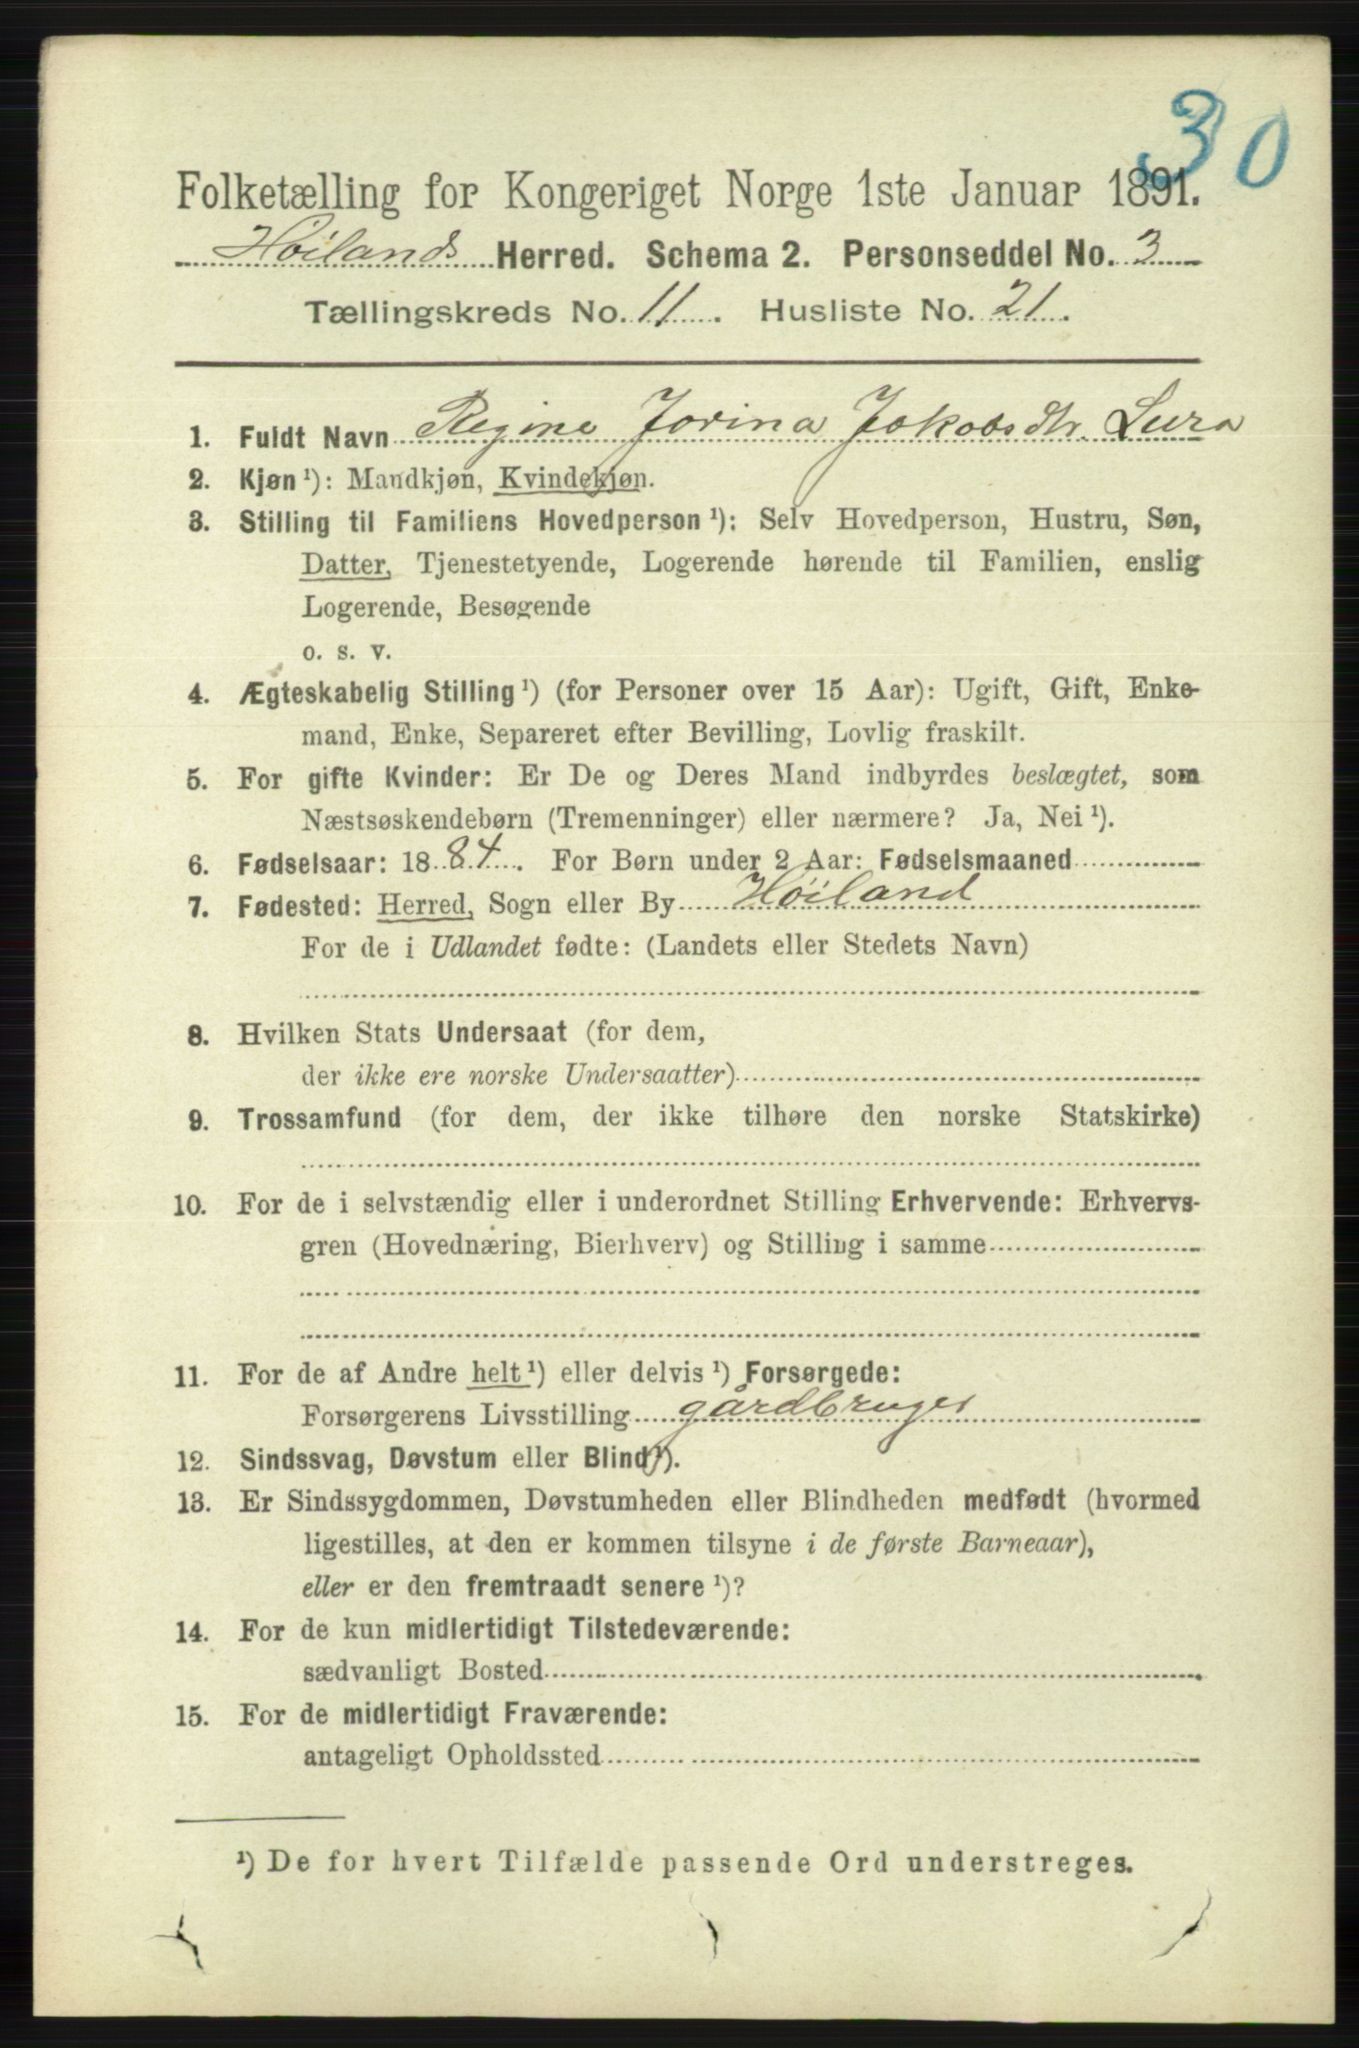 30
Folketælling for Kongeriget Norge 1ste Januar 1891.
Høilands Herred. Schema 2. Personseddel No. 3
Tællingskreds No. 11. Husliste No. 21.
1. Fuldt Navn Regine Jorina Jakobsdtr. Lura
2. Kjøn ¹): Mandkjøn, Kvindekjøn.
3. Stilling til Familiens Hovedperson ¹): Selv Hovedperson, Hustru, Søn,
Datter, Tjenestetyende, Logerende hørende til Familien, enslig
Logerende, Besøgende
o. s. v.
4. Ægteskabelig Stilling ¹) (for Personer over 15 Aar): Ugift, Gift, Enke-
mand, Enke, Separeret efter Bevilling, Lovlig fraskilt.
5. For gifte Kvinder: Er De og Deres Mand indbyrdes beslægtet, som
Næstsøskendebørn (Tremenninger) eller nærmere? Ja, Nei ¹).
6. Fødselsaar: 1884. For Børn under 2 Aar: Fødselsmaaned
7. Fødested: Herred, Sogn eller By Høiland
For de i Udlandet fødte: (Landets eller Stedets Navn)
8. Hvilken Stats Undersaat (for dem,
der ikke ere norske Undersaatter)
9. Trossamfund (for dem, der ikke tilhøre den norske Statskirke)
10. For de i selvstændig eller i underordnet Stilling Erhvervende: Erhvervs-
gren (Hovednæring, Bierhverv) og Stilling i samme
11. For de af Andre helt ¹) eller delvis ¹) Forsørgede:
Forsørgerens Livsstilling gårdbruger
12. Sindssvag, Døvstum eller Blind ¹).
13. Er Sindssygdommen, Døvstumheden eller Blindheden medfødt (hvormed
ligestilles, at den er kommen tilsyne i de første Barneaar),
eller er den fremtraadt senere ¹)?
14. For de kun midlertidigt Tilstedeværende:
sædvanligt Bosted
15. For de midlertidigt Fraværende:
antageligt Opholdssted
¹) De for hvert Tilfælde passende Ord understreges.